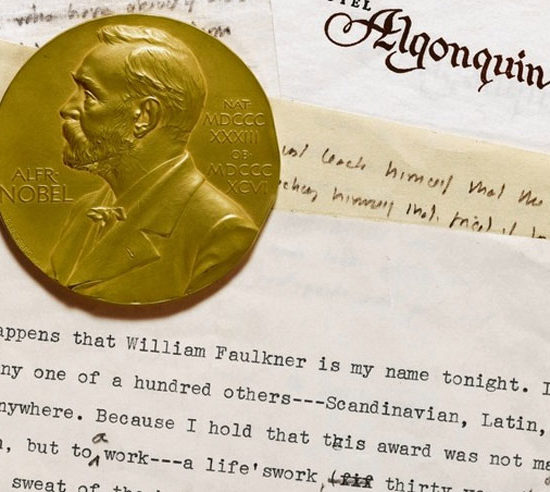 Algonquin
ALFR·
NOBEL
NAT·
MDCCC
XXXIII
OB·
MDCCC
XCVI
teach himself that the
himself that,
appens that William Faulkner is my name tonight. I
ny one of a hundred others---Scandinavian, Latin,
nywhere. Because I hold that this award was not ma
, but to a work---a life'swork, thirty
sweat of the